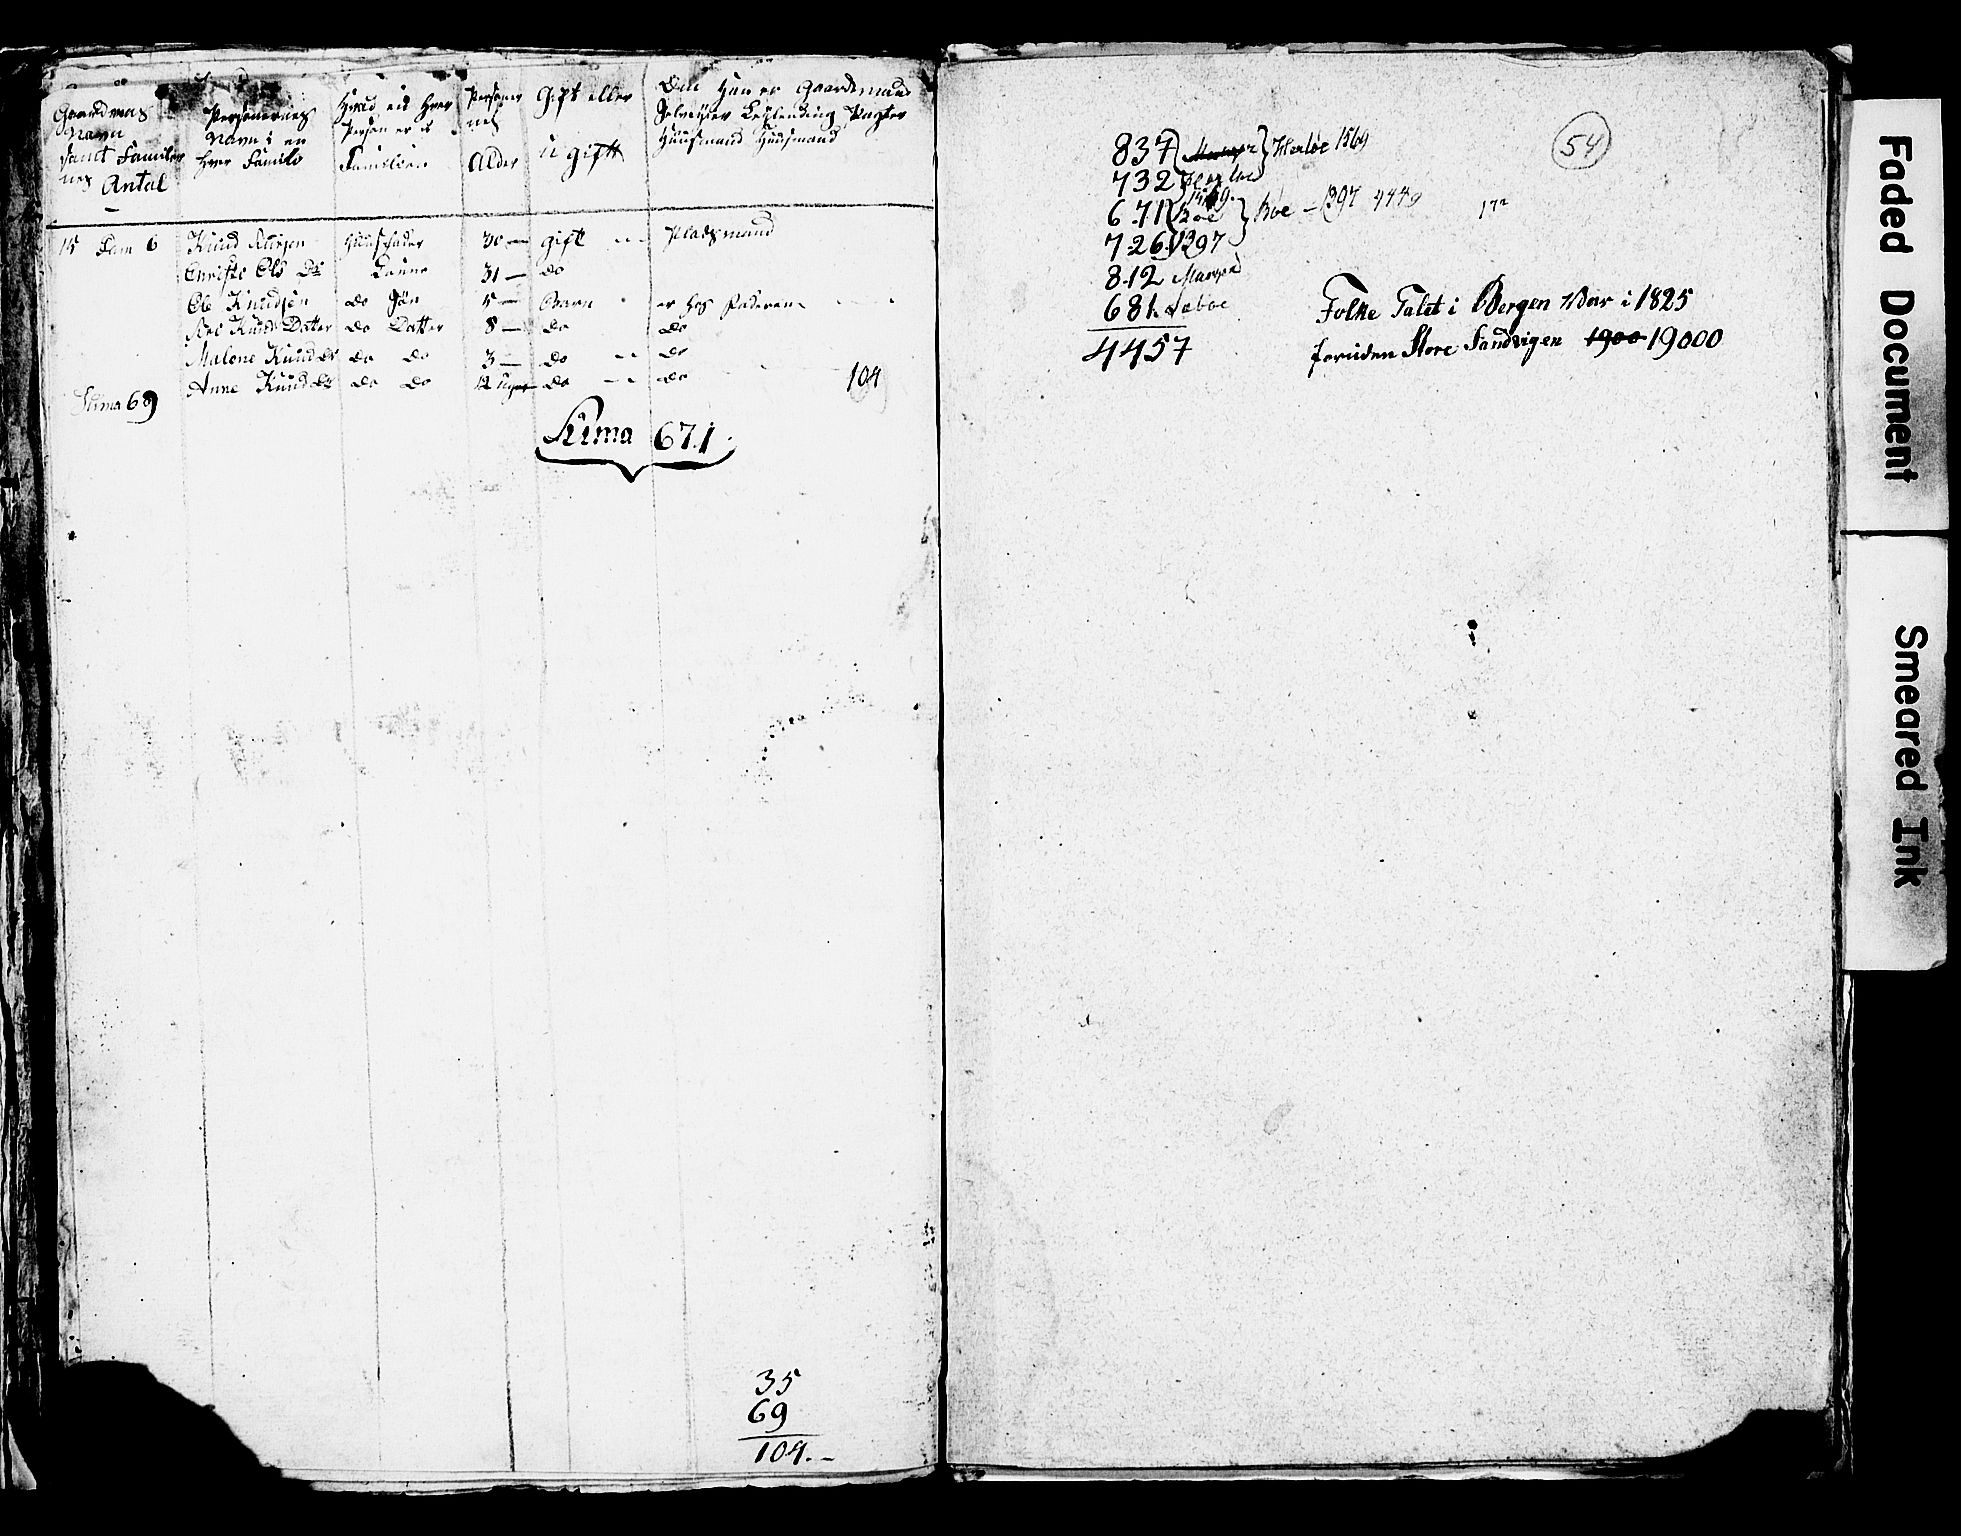 Gaardenes
Navn
samt Familier
nes Antal
Personernes
Navn i en
hver Familie
Hvad en hver
Person er i
Familien
Personer
nes
Alder
Gift eller
u gift
Om Han er Gaardemand
Selveyer Leylending Pagter
Huusmand Huusmand
15 Fam 6 Knud Huusfader 30 — gift Pladsmand
Ols Dr Koune 31 — do
Ole Knudsøn do Søn 5 — Barn er hos Faderen
Knuds Datter do Datter 8 — do do
Malene Knuds Dr do do 3 — do do
Anne Knuds Dr do do 12 Uger do do 104
Suma 69
Suma 671
35
69
104.–
54
837 Manger } Herløe 1569
732 Herløe
1569.
671 Boe } Boe — 1397 4449 172
726 1397
812 Manger
681 Sæboe
4457
Folke Talet i Bergen Var i 1825
foruden Store Sandvigen 1900 19000
Faded Document
Smeared Ink